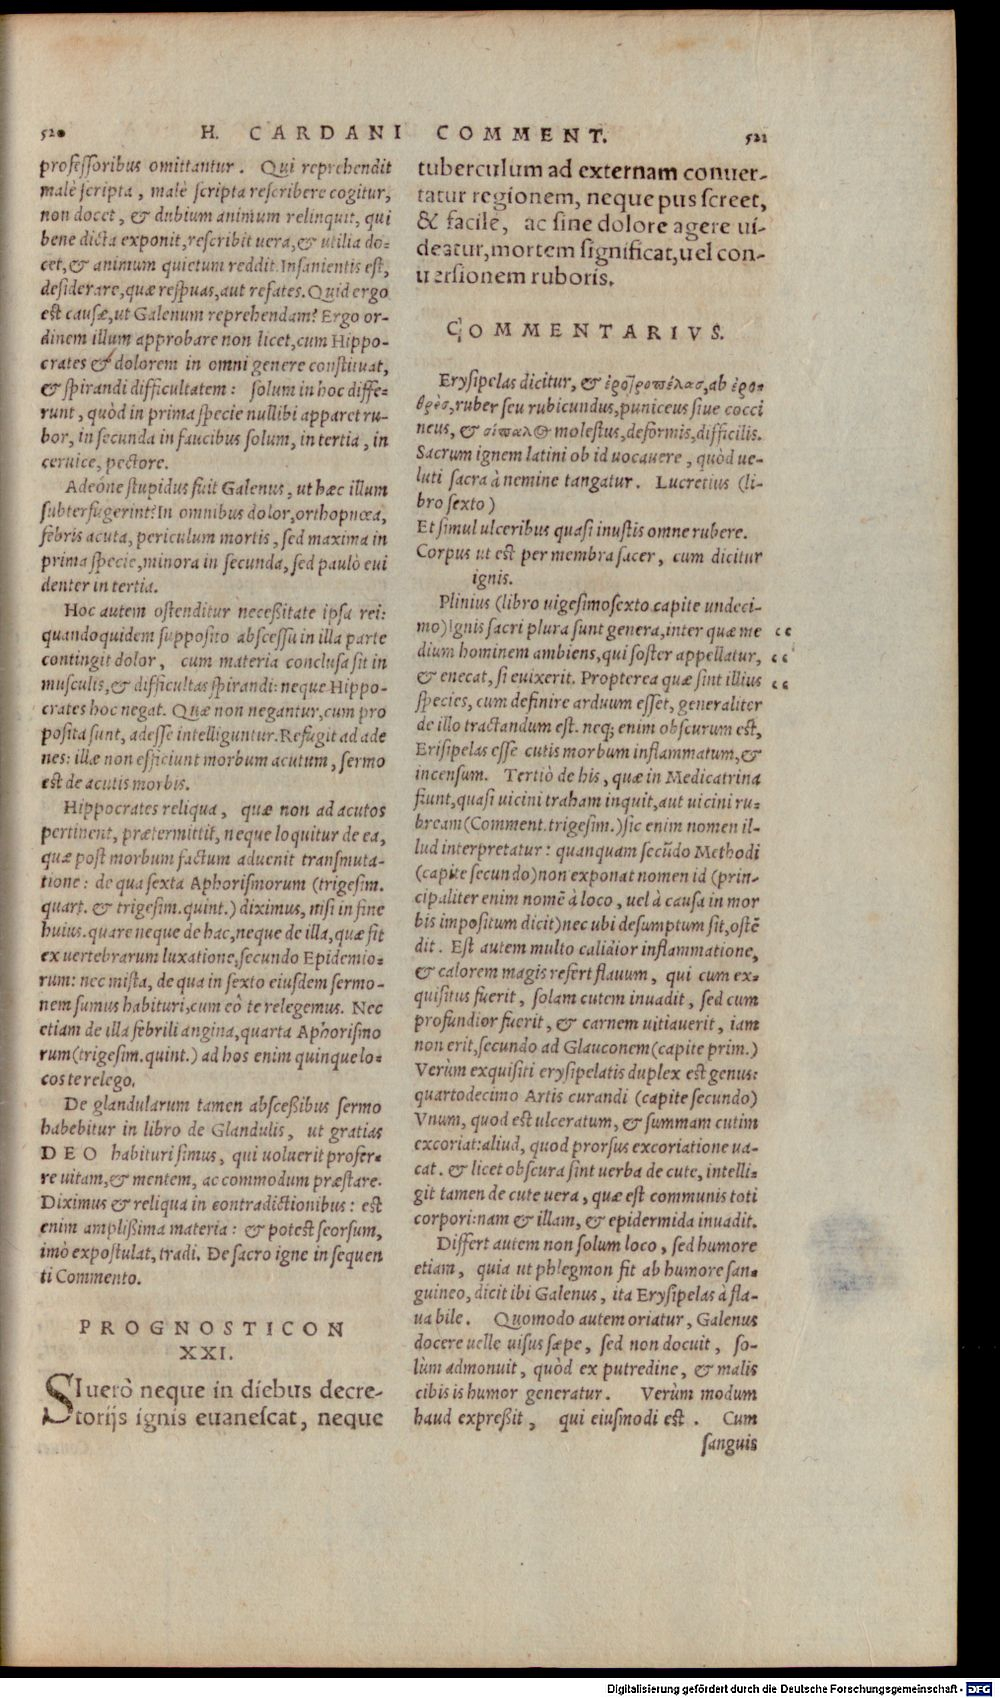 520 H. CARDANI COMMENT. 521
professoribus omittantur. Qui reprehendit
malè scripta, malè scripta rescribere cogitur,
non docet, & dubium animum relinquit, qui
bene dicta exponit, rescribit uera, & utilia do-
cet, & animum quietum reddit. Insanientis est,
desiderare, quæ respuas, aut refates. Quid ergo
est causæ, ut Galenum reprehendam? Ergo or-
dinem illum approbare non licet, cum Hippo-
crates & dolorem in omni genere constituat,
& spirandi difficultatem: solum in hoc diffe-
runt, quòd in prima specie nullibi apparet ru-
bor, in secunda in faucibus solum, in tertia, in
ceruice, pectore.
Adeóne stupidus fuit Galenus, ut hæc illum
subterfugerint? In omnibus dolor, orthopnœa,
febris acuta, periculum mortis, sed maxima in
prima specie, minora in secunda, sed paulò eui
denter in tertia.
Hoc autem ostenditur necessitate ipsa rei:
quandoquidem supposito abscessu in illa parte
contingit dolor, cum materia conclusa sit in
musculis, & difficultas spirandi: neque Hippo-
crates hoc negat. Quæ non negantur, cum pro
posita sunt, adesse intelliguntur. Refugit ad ade
nes: illæ non efficiunt morbum acutum, sermo
est de acutis morbis.
Hippocrates reliqua, quæ non ad acutos
pertinent, prætermittit, neque loquitur de ea,
quæ post morbum factum aduenit transmuta-
tione: de qua sexta Aphorismorum (trigesim.
quart. & trigesim. quint.) diximus, nisi in fine
huius. quare neque de hac, neque de illa, quæ fit
ex uertebrarum luxatione, secundo Epidemio-
rum: nec mista, de qua in sexto eiusdem sermo-
nem sumus habituri, cum eò te relegemus. Nec
etiam de illa febrili angina, quarta Aphorismo
rum (trigesim. quint.) ad hos enim quinque lo-
cos te relego.
De glandularum tamen abscessibus sermo
habebitur in libro de Glandulis, ut gratias
DEO habituri simus, qui uoluerit profer-
re uitam, & mentem, ac commodum præstare.
Diximus & reliqua in contradictionibus: est
enim amplissima materia: & potest seorsum,
imò expostulat, tradi. De sacro igne in sequen
ti Commento.
PROGNOSTICON
XXI.
SI uerò neque in diebus decre-
torijs ignis euanescat, neque
tuberculum ad externam conuer-
tatur regionem, neque pus screet,
& facilè, ac sine dolore agere ui-
deatur, mortem significat, uel con-
uersionem ruboris.
COMMENTARIVS.
Erysipelas dicitur, & ab
ruber seu rubicundus, puniceus siue cocci
neus, & molestus, deformis, difficilis.
Sacrum ignem latini ob id uocauere, quòd ue-
luti sacra à nemine tangatur. Lucretius (li-
bro sexto)
Et simul ulceribus quasi inustis omne rubere.
Corpus ut est per membra sacer, cum dicitur
ignis.
Plinius (libro uigesimosexto capite undeci-
mo) Ignis sacri plura sunt genera, inter quæ me
dium hominem ambiens, qui soster appellatur,
& enecat, si euixerit. Propterea quæ sint illius
species, cum definire arduum esset, generaliter
de illo tractandum est. neq; enim obscurum est,
Erisipelas esse cutis morbum inflammatum, &
incensum. Tertiò de his, quæ in Medicatrina
fiunt, quasi uicini traham inquit, aut uicini ru-
bream (Comment. trigesim.) sic enim nomen il-
lud interpretatur: quanquam secũdo Methodi
(capite secundo) non exponat nomen id (prin-
cipaliter enim nomẽ à loco, uel à causa in mor
bis impositum dicit) nec ubi desumptum sit, ostẽ
dit. Est autem multo calidior inflammatione,
& calorem magis refert flauum, qui cum ex-
quisitus fuerit, solam cutem inuadit, sed cum
profundior fuerit, & carnem uitiauerit, iam
non erit, secundo ad Glauconem (capite prim.)
Verùm exquisiti erysipelatis duplex est genus:
quartodecimo Artis curandi (capite secundo)
Vnum, quod est ulceratum, & summam cutim
excoriat: aliud, quod prorsus excoriatione ua-
cat. & licet obscura sint uerba de cute, intelli-
git tamen de cute uera, quæ est communis toti
corpori: nam & illam, & epidermida inuadit.
Differt autem non solum loco, sed humore
etiam, quia ut phlegmon fit ab humore san-
guineo, dicit ibi Galenus, ita Erysipelas à fla-
ua bile. Quomodo autem oriatur, Galenus
docere uelle uisus sæpe, sed non docuit, so-
lùm admonuit, quòd ex putredine, & malis
cibis is humor generatur. Verùm modum
haud expreßit, qui eiusmodi est. Cum
sanguis
Digitalisierung gefördert durch die Deutsche Forschungsgemeinschaft - DFG